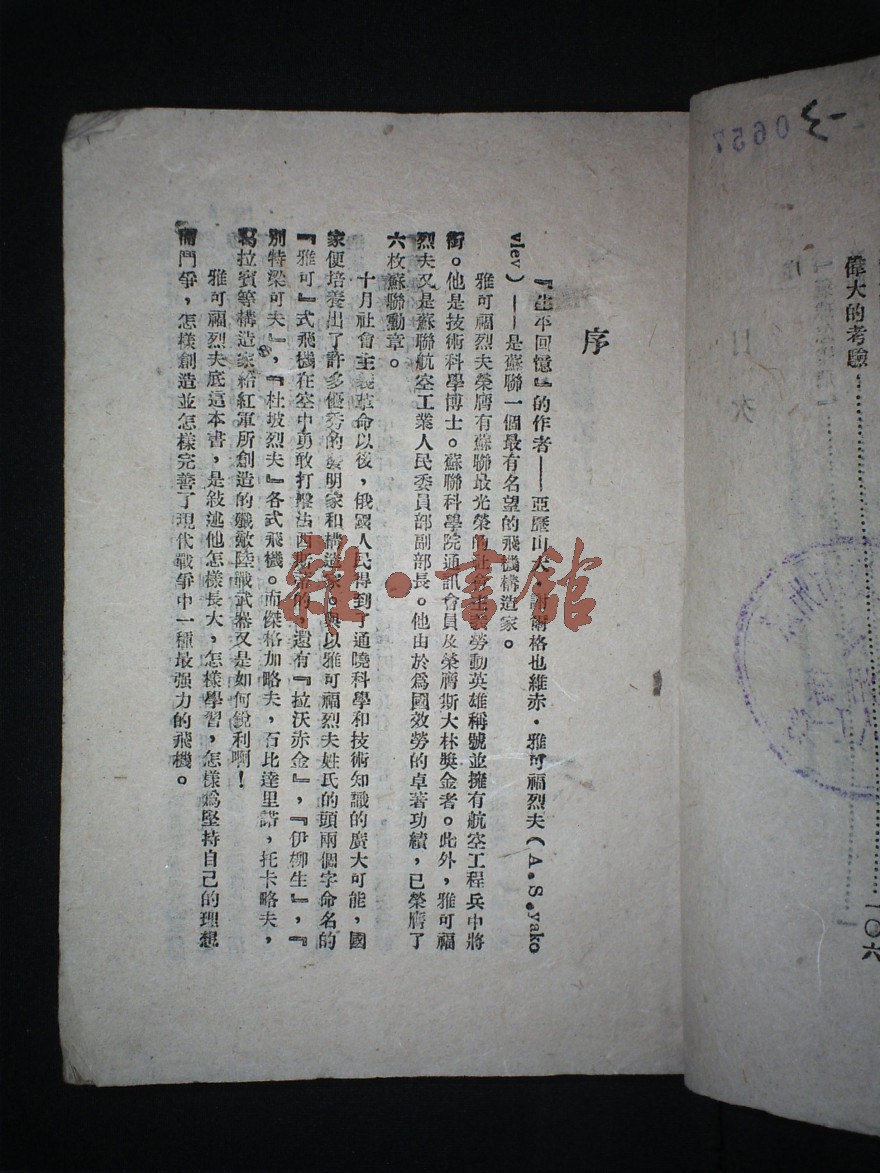 偉大的考驗……………一〇六
0657
序
『生平回憶』的作者——亞歷山大·謝爾格也維赤·雅可福烈夫（A.S.yako
vlev）——是蘇聯一個最有名望的飛機構造家。
雅可福烈夫榮膺有蘇聯最光榮的社會主義勞動英雄稱號並擁有航空工程兵中將
銜。他是技術科學博士。蘇聯科學院通訊會員及榮膺斯大林獎金者。此外，雅可福
烈夫又是蘇聯航空工業人民委員部副部長。他由於爲國效勞的卓著功績，已榮膺了
六枚蘇聯勳章。
十月社會主義革命以後，俄國人民得到了通曉科學和技術知識的廣大可能，國
家便培養出了許多優秀的發明家和構造家。與以雅可福烈夫姓氏的頭兩個字命名的
『雅可』式飛機在空中勇敢打擊法西斯 的，還有『拉沃赤金』，『伊柳生』，『
別特梁可夫』，『杜坡烈夫』各式飛機。而傑格加略夫，石比達里諾，托卡略夫，
葛拉賓等構造家給紅軍所創造的殲敵陸戰武器又是如何銳利啊！
雅可福烈夫底這本書，是敍述他怎樣長大，怎樣學習，怎樣爲堅持自己的理想
而鬥爭，怎樣創造並怎樣完善了現代戰爭中一種最强力的飛機。
雜·書館